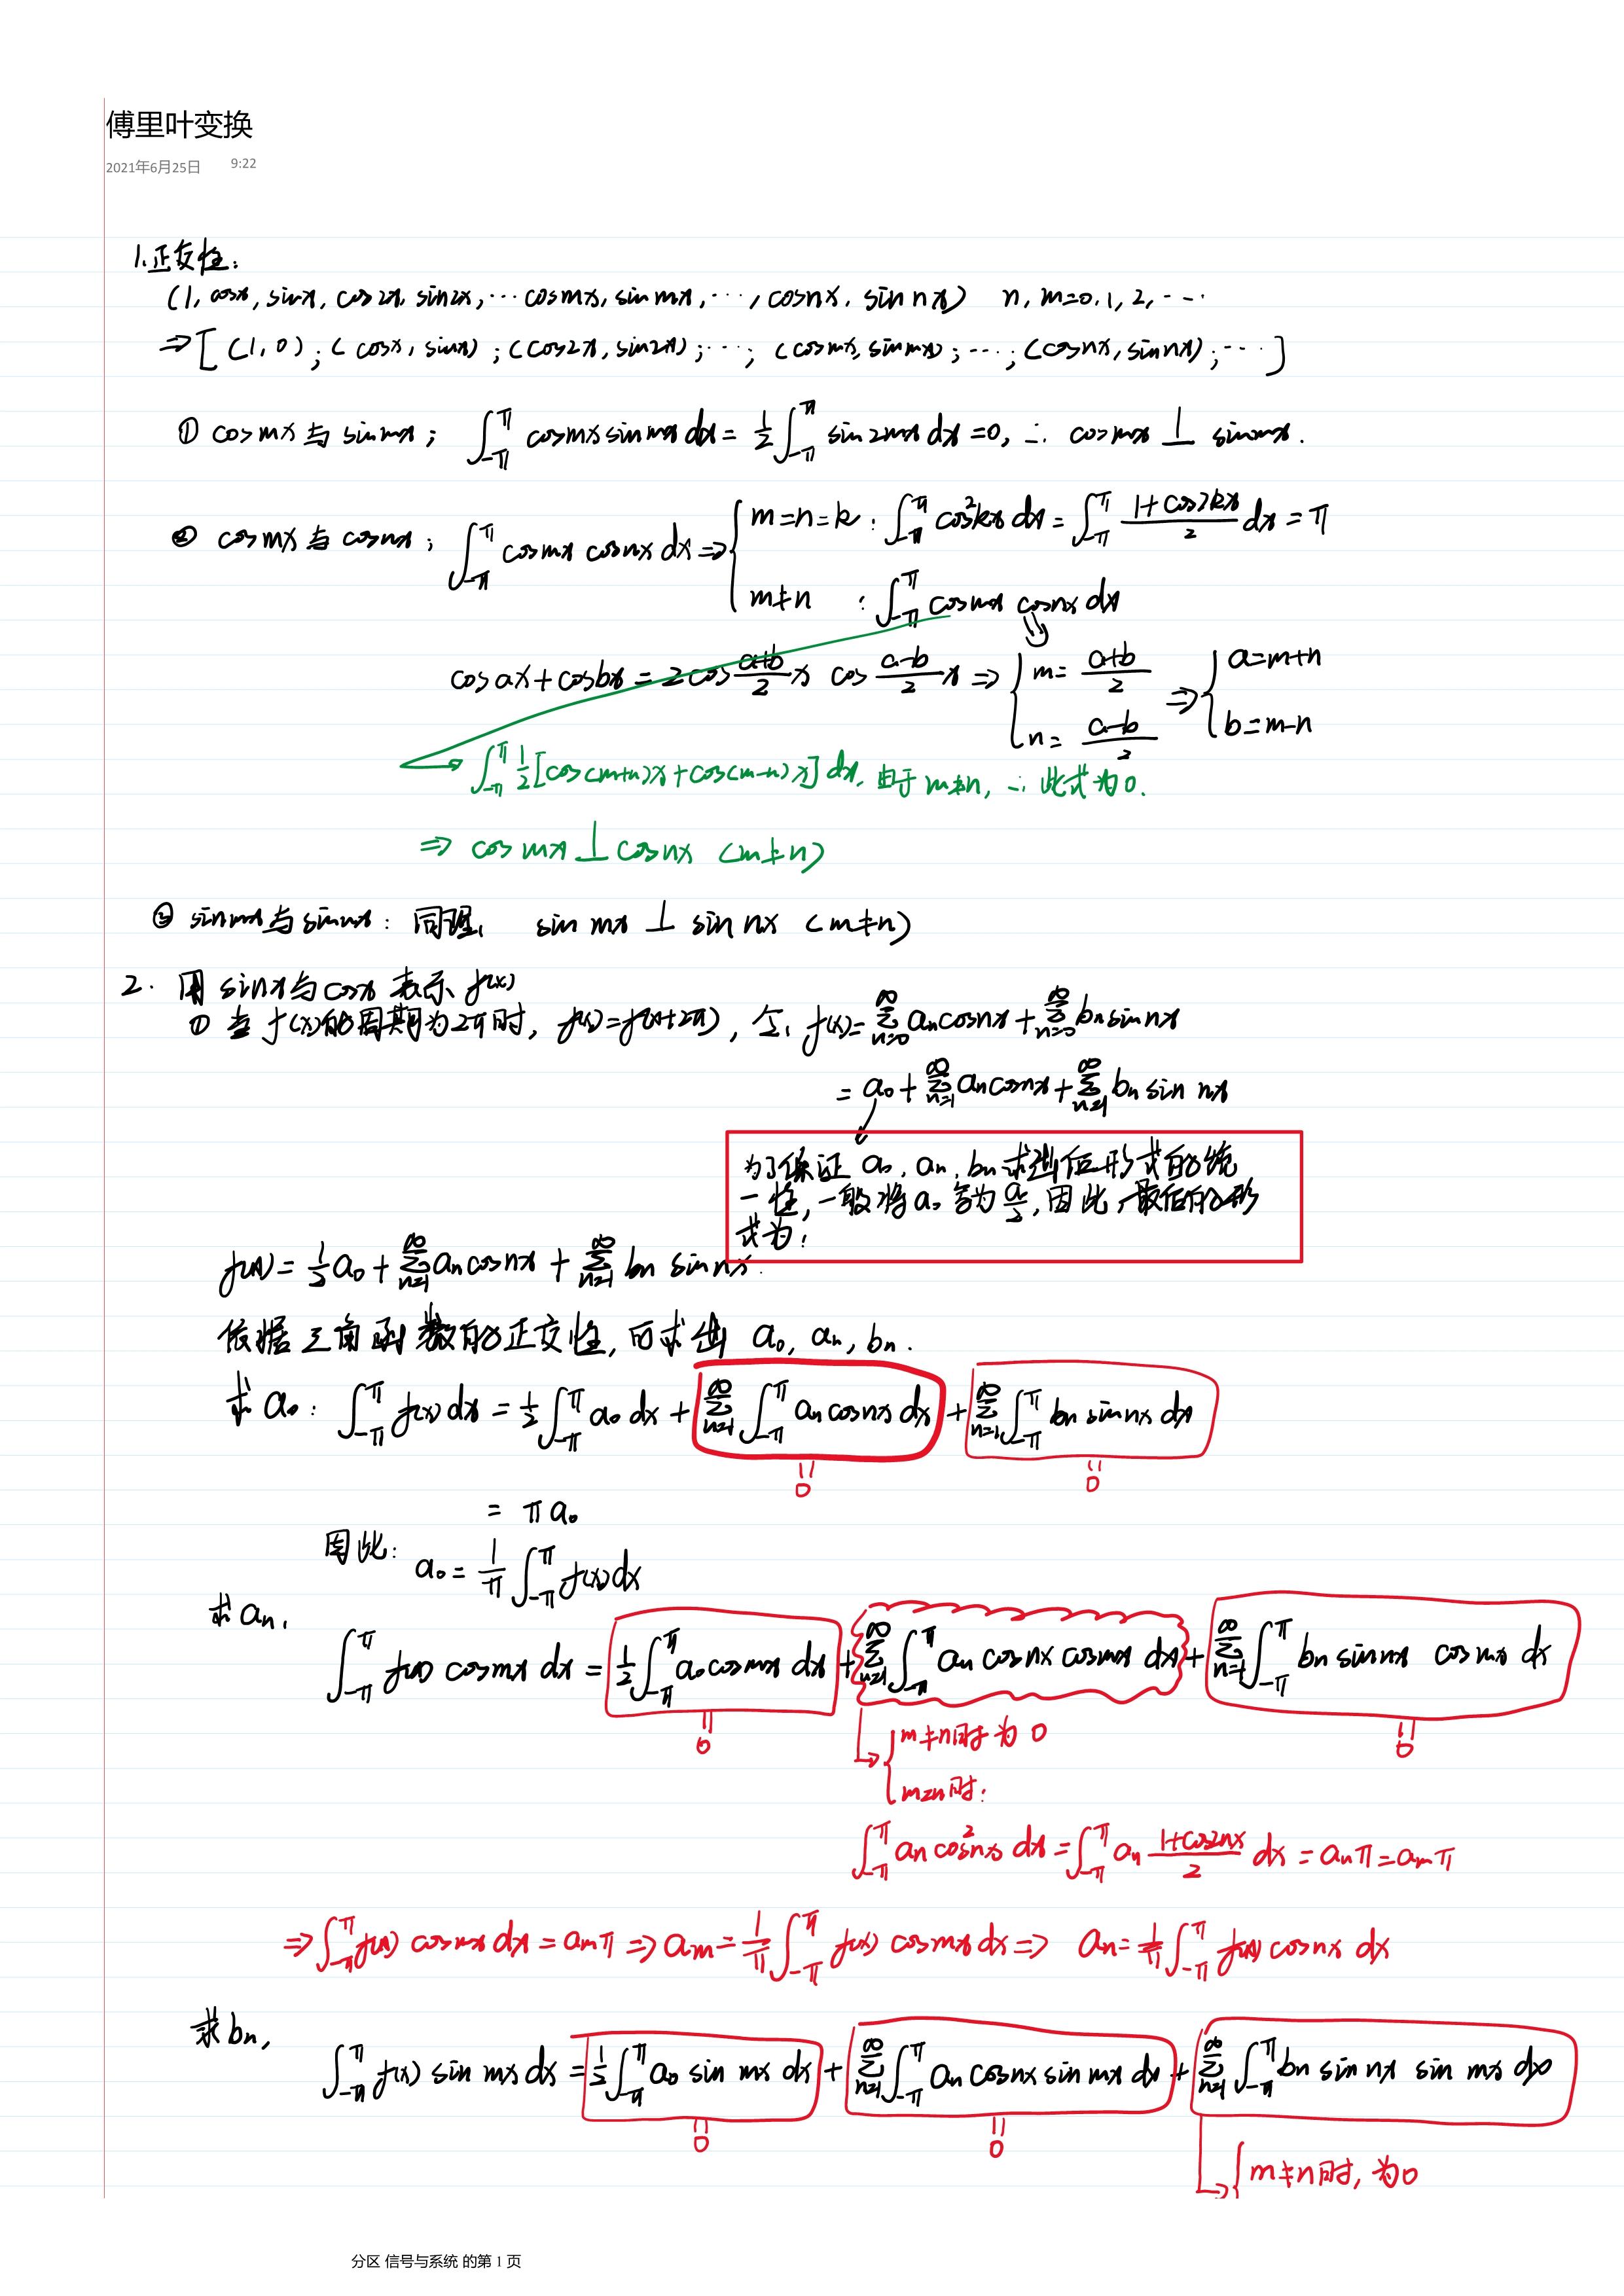 傅里叶变换
2021年6月25日 9:22
1.正交性:
(1, cosx, sinx, cos2x, sin2x, ··· cosmx, sinmx, ···, cosnx, sin nx) n, m=0, 1, 2, ···
⇒[(1, 0); (cosx, sinx); (cos2x, sin2x); ···; (cosmx, sinmx); ···; (cosnx, sinnx); ···]
① cosmx与sinmx; ∫_{-π}^{π} cosmx sinmx dx = 1/2 ∫_{-π}^{π} sin2mx dx = 0, ∴ cosmx ⊥ sinmx.
② cosmx与cosnx; ∫_{-π}^{π} cosmx cosnx dx ⇒ { m=n=k : ∫_{-π}^{π} cos²kx dx = ∫_{-π}^{π} (1+cos2kx)/2 dx = π
m≠n : ∫_{-π}^{π} cosmx cosnx dx
cosax+cosbx = 2cos (a+b)/2 x cos (a-b)/2 x ⇒ { m = (a+b)/2 n = (a-b)/2 ⇒ { a=m+n b=m-n
∫_{-π}^{π} 1/2 [cos(m+n)x+cos(m-n)x] dx, 由于m≠n, ∴ 此式为0.
⇒ cos mx ⊥ cosnx (m≠n)
③ sinmx与sinnx: 同理, sin mx ⊥ sin nx (m≠n)
2. 用sinx与cosx表示f(x)
① 当f(x)的周期为2π时, f(x)=f(x+2π), 令: f(x)=∑_{n=0}^{∞} an cosnx + ∑_{n=0}^{∞} bn sin nx
= a0 + ∑_{n=1}^{∞} an cosnx + ∑_{n=1}^{∞} bn sin nx
为了保证 a0, an, bn求出后形式的统
一性, 一般将a0写为a0/2, 因此, 最后的形
式为:
f(x) = 1/2 a0 + ∑_{n=1}^{∞} an cosnx + ∑_{n=1}^{∞} bn sin nx.
依据三角函数的正交性, 可求出 a0, an, bn.
求a0: ∫_{-π}^{π} f(x) dx = 1/2 ∫_{-π}^{π} a0 dx + ∑_{n=1}^{∞} ∫_{-π}^{π} an cosnx dx + ∑_{n=1}^{∞} ∫_{-π}^{π} bn sinnx dx
= 0 = 0
= π a0
因此: a0 = 1/π ∫_{-π}^{π} f(x) dx
求an,
∫_{-π}^{π} f(x) cosmx dx = 1/2 ∫_{-π}^{π} a0 cosmx dx + ∑_{n=1}^{∞} ∫_{-π}^{π} an cosnx cosmx dx + ∑_{n=1}^{∞} ∫_{-π}^{π} bn sinnx cosmx dx
= 0 = 0
{ m≠n时为 0
m=n时:
∫_{-π}^{π} an cos²nx dx = ∫_{-π}^{π} an (1+cos2nx)/2 dx = anπ = amπ
⇒ ∫_{-π}^{π} f(x) cosmx dx = amπ ⇒ am = 1/π ∫_{-π}^{π} f(x) cosmx dx ⇒ an = 1/π ∫_{-π}^{π} f(x) cosnx dx
求bn,
∫_{-π}^{π} f(x) sin mx dx = 1/2 ∫_{-π}^{π} a0 sin mx dx + ∑_{n=1}^{∞} ∫_{-π}^{π} an cosnx sin mx dx + ∑_{n=1}^{∞} ∫_{-π}^{π} bn sin nx sin mx dx
= 0 = 0
{ m≠n时, 为0
分区 信号与系统 的第 1 页